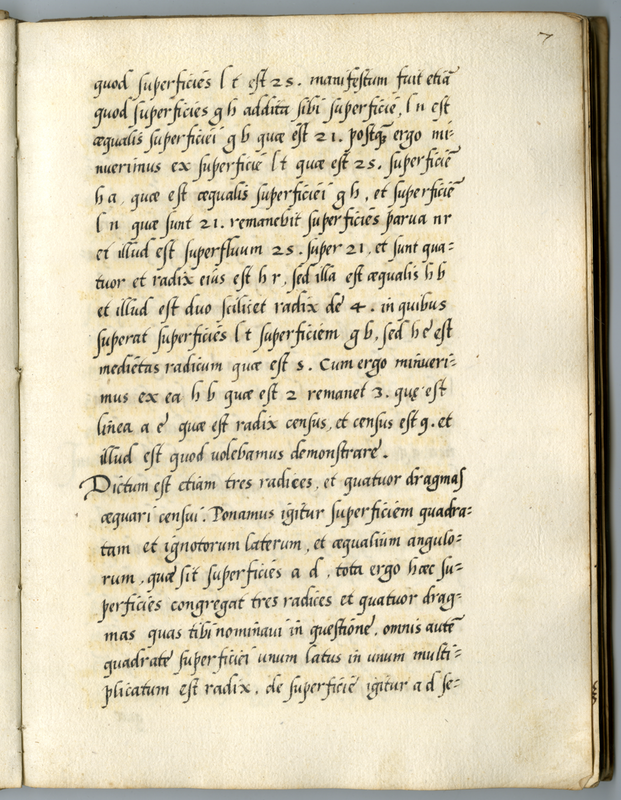 7
quod superficies l t est 25. manifestum fuit etiã
quod superficies g h addita sibi superficie, l n est
æqualis superficiei g b quæ est 21. postq̃ ergo mi-
nuerimus ex superficie l t quæ est 25. superficiẽ
h a, quæ est æqualis superficiei g h, et superficiẽ
l n quæ sunt 21. remanebit superficies parua n r
et illud est superfluum 25. super 21, et sunt qua=
tuor et radix eius est h r, sed illa est æqualis h b
et illud est duo scilicet radix de 4. in quibus
superat superficies l t superficiem g b, sed h e est
medietas radicum quæ est 5. Cum ergo minueri-
mus ex ea h b quæ est 2 remanet 3. quę est
linea a e quæ est radix census, et census est 9. et
illud est quod volebamus demonstrare.
Dictum est etiam tres radices, et quatuor dragmas
æquari censui. Ponamus igitur superficiem quadra=
tam et ignotorum laterum, et æqualium angulo-
rum, quæ sit superficies a d, tota ergo hæc su-
perficies congregat tres radices et quatuor drag-
mas quas tibi nominaui in questione, omnis autẽ
quadrate superficiei unum latus in unum multi=
plicatum est radix, de superficie igitur a d se=